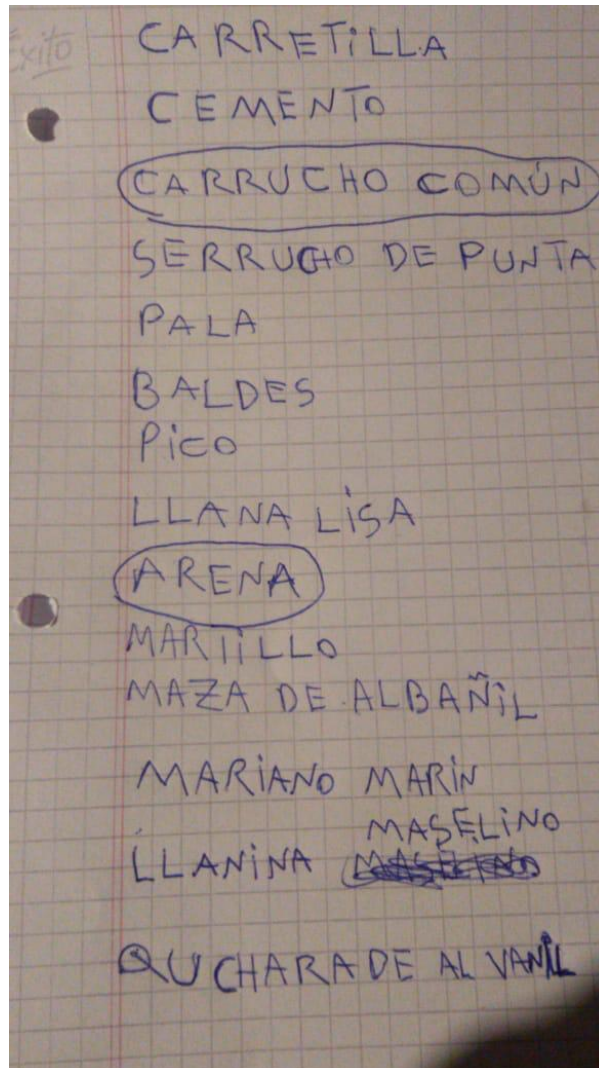 Éxito
CARRETiLLA
CEMENTO
CARRUCHO COMÚN
SERRUCHO DE PUNTA
PALA
BALDES
PiCO
LLANA LiSA
ARENA
MARTiLLO
MAZA DE ALBAÑiL
MARiANO MARiN
MASELiNO
LLANiNA
QUCHARA DE AL VANiL